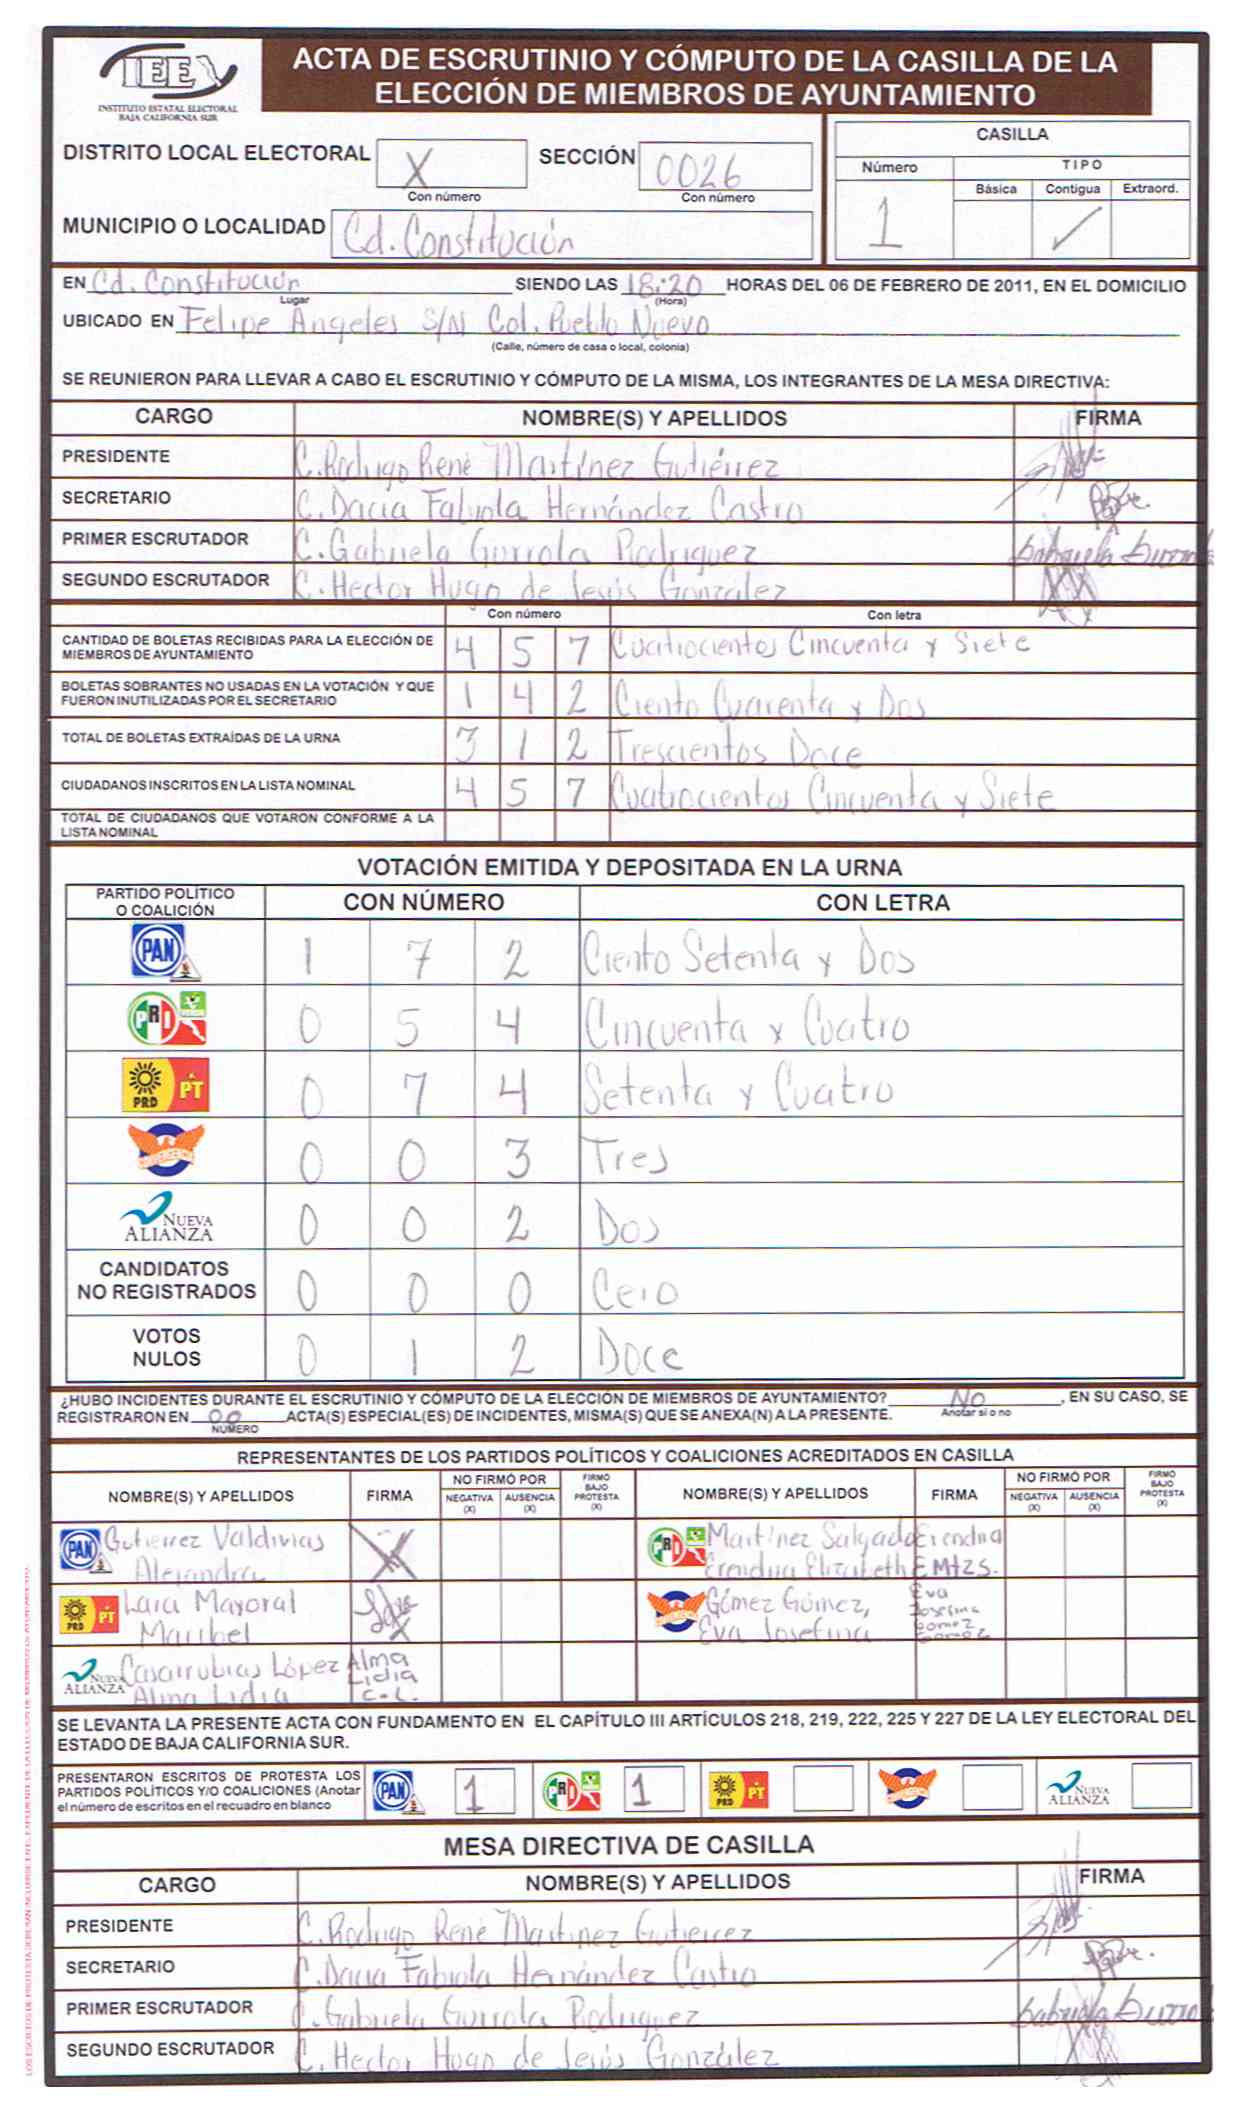 IEE
INSTITUTO ESTATAL ELECTORAL
BAJA CALIFORNIA SUR
ACTA DE ESCRUTINIO Y CÓMPUTO DE LA CASILLA DE LA
ELECCIÓN DE MIEMBROS DE AYUNTAMIENTO
DISTRITO LOCAL ELECTORAL X SECCIÓN 0026
Con número Con número
MUNICIPIO O LOCALIDAD Cd. Constitución
CASILLA
Número TIPO
Básica Contigua Extraord.
1 ✓
EN Cd. Constitución SIENDO LAS 18:20 HORAS DEL 06 DE FEBRERO DE 2011, EN EL DOMICILIO
Lugar (Hora)
UBICADO EN Felipe Angeles S/N Col. Pueblo Nuevo
(Calle, número de casa o local, colonia)
SE REUNIERON PARA LLEVAR A CABO EL ESCRUTINIO Y CÓMPUTO DE LA MISMA, LOS INTEGRANTES DE LA MESA DIRECTIVA:
CARGO NOMBRE(S) Y APELLIDOS FIRMA
PRESIDENTE C. Rodrigo René Martínez Gutiérrez
SECRETARIO C. Dacia Fabiola Hernández Castro
PRIMER ESCRUTADOR C. Gabriela Gurrola Rodriguez
SEGUNDO ESCRUTADOR C. Hector Hugo de Jesús González
Con número Con letra
CANTIDAD DE BOLETAS RECIBIDAS PARA LA ELECCIÓN DE
MIEMBROS DE AYUNTAMIENTO 4 5 7 Cuatrocientos Cincuenta y Siete
BOLETAS SOBRANTES NO USADAS EN LA VOTACIÓN Y QUE
FUERON INUTILIZADAS POR EL SECRETARIO 1 4 2 Ciento Cuarenta y Dos
TOTAL DE BOLETAS EXTRAÍDAS DE LA URNA 3 1 2 Trescientos Doce
CIUDADANOS INSCRITOS EN LA LISTA NOMINAL 4 5 7 Cuatrocientos Cincuenta y Siete
TOTAL DE CIUDADANOS QUE VOTARON CONFORME A LA
LISTA NOMINAL
VOTACIÓN EMITIDA Y DEPOSITADA EN LA URNA
PARTIDO POLÍTICO
O COALICIÓN CON NÚMERO CON LETRA
PAN 1 7 2 Ciento Setenta y Dos
PRI 0 5 4 Cincuenta y Cuatro
PRD PT 0 7 4 Setenta y Cuatro
CONVERGENCIA 0 0 3 Tres
NUEVA ALIANZA 0 0 2 Dos
CANDIDATOS
NO REGISTRADOS 0 0 0 Cero
VOTOS
NULOS 0 1 2 Doce
¿HUBO INCIDENTES DURANTE EL ESCRUTINIO Y CÓMPUTO DE LA ELECCIÓN DE MIEMBROS DE AYUNTAMIENTO? No, EN SU CASO, SE
Anotar sí o no
REGISTRARON EN 00 ACTA(S) ESPECIAL(ES) DE INCIDENTES, MISMA(S) QUE SE ANEXA(N) A LA PRESENTE.
NÚMERO
REPRESENTANTES DE LOS PARTIDOS POLÍTICOS Y COALICIONES ACREDITADOS EN CASILLA
NOMBRE(S) Y APELLIDOS FIRMA NO FIRMÓ POR NEGATIVA (X) AUSENCIA (X) FIRMÓ BAJO PROTESTA (X) NOMBRE(S) Y APELLIDOS FIRMA NO FIRMÓ POR NEGATIVA (X) AUSENCIA (X) FIRMÓ BAJO PROTESTA (X)
PAN Gutierrez Valdivias
Alejandra
PRI Martínez Salgado Erendira
Erendira Elizabeth E Mtzs.
PRD PT Lara Mayoral
Maribel
CONVERGENCIA Gómez Gómez,
Eva Josefina
Eva
Josefina
Gomez
Gomez
NUEVA ALIANZA Casarrubias López
Alma Lidia
Alma
Lidia
C.L.
SE LEVANTA LA PRESENTE ACTA CON FUNDAMENTO EN EL CAPÍTULO III ARTÍCULOS 218, 219, 222, 225 Y 227 DE LA LEY ELECTORAL DEL
ESTADO DE BAJA CALIFORNIA SUR.
PRESENTARON ESCRITOS DE PROTESTA LOS
PARTIDOS POLÍTICOS Y/O COALICIONES (Anotar
el número de escritos en el recuadro en blanco
PAN 1 PRI 1 PRD PT CONVERGENCIA NUEVA ALIANZA
MESA DIRECTIVA DE CASILLA
CARGO NOMBRE(S) Y APELLIDOS FIRMA
PRESIDENTE C. Rodrigo René Martinez Gutierrez
SECRETARIO C. Dacia Fabiola Hernández Castro
PRIMER ESCRUTADOR C. Gabriela Gurrola Rodriguez
SEGUNDO ESCRUTADOR C. Hector Hugo de Jesús González